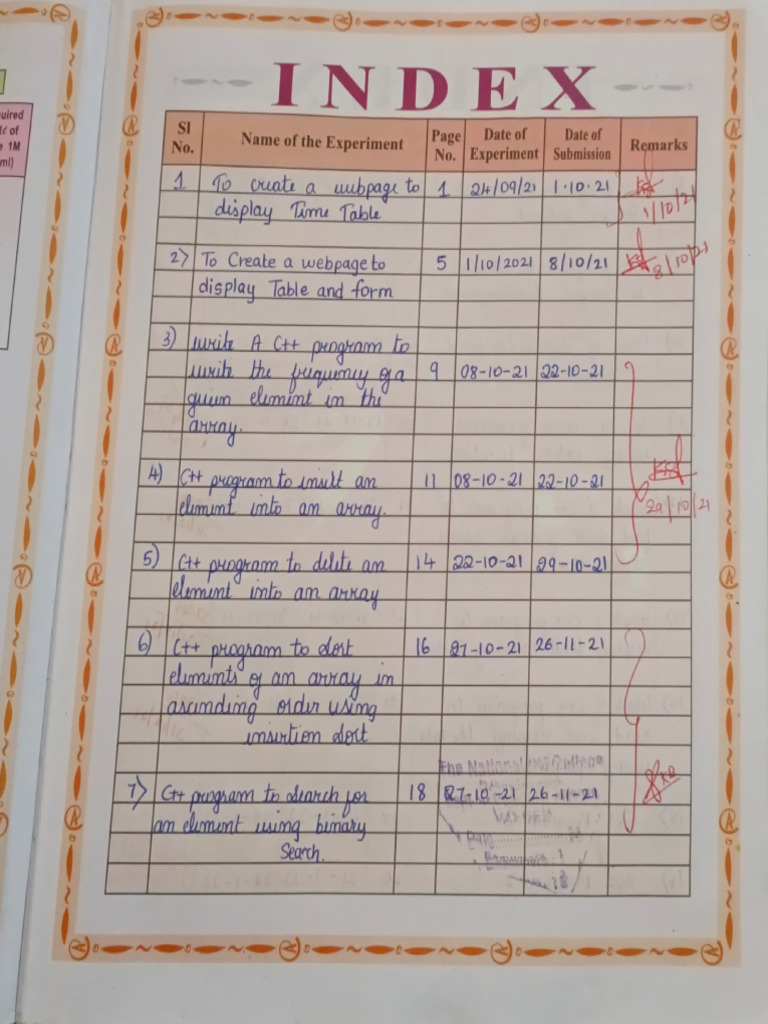 uired
te of
1M
ml)
INDEX
Sl No. Name of the Experiment Page No. Date of Experiment Date of Submission Remarks
1 To create a webpage to 1 24/09/21 1.10.21
display Time Table 1/10/21
2) To Create a webpage to 5 1/10/2021 8/10/21 8/10/21
display Table and form
3) write A C++ program to
write the frequency of a 9 08-10-21 22-10-21
given element in the
array.
4) C++ program to insert an 11 08-10-21 22-10-21
element into an array. 29/10/21
5) C++ program to delete an 14 22-10-21 29-10-21
element into an array
6) C++ program to sort 16 27-10-21 26-11-21
elements of an array in
ascending order using
insertion sort
The National
7) C++ program to search for 18 27-10-21 26-11-21
an element using binary
Search.